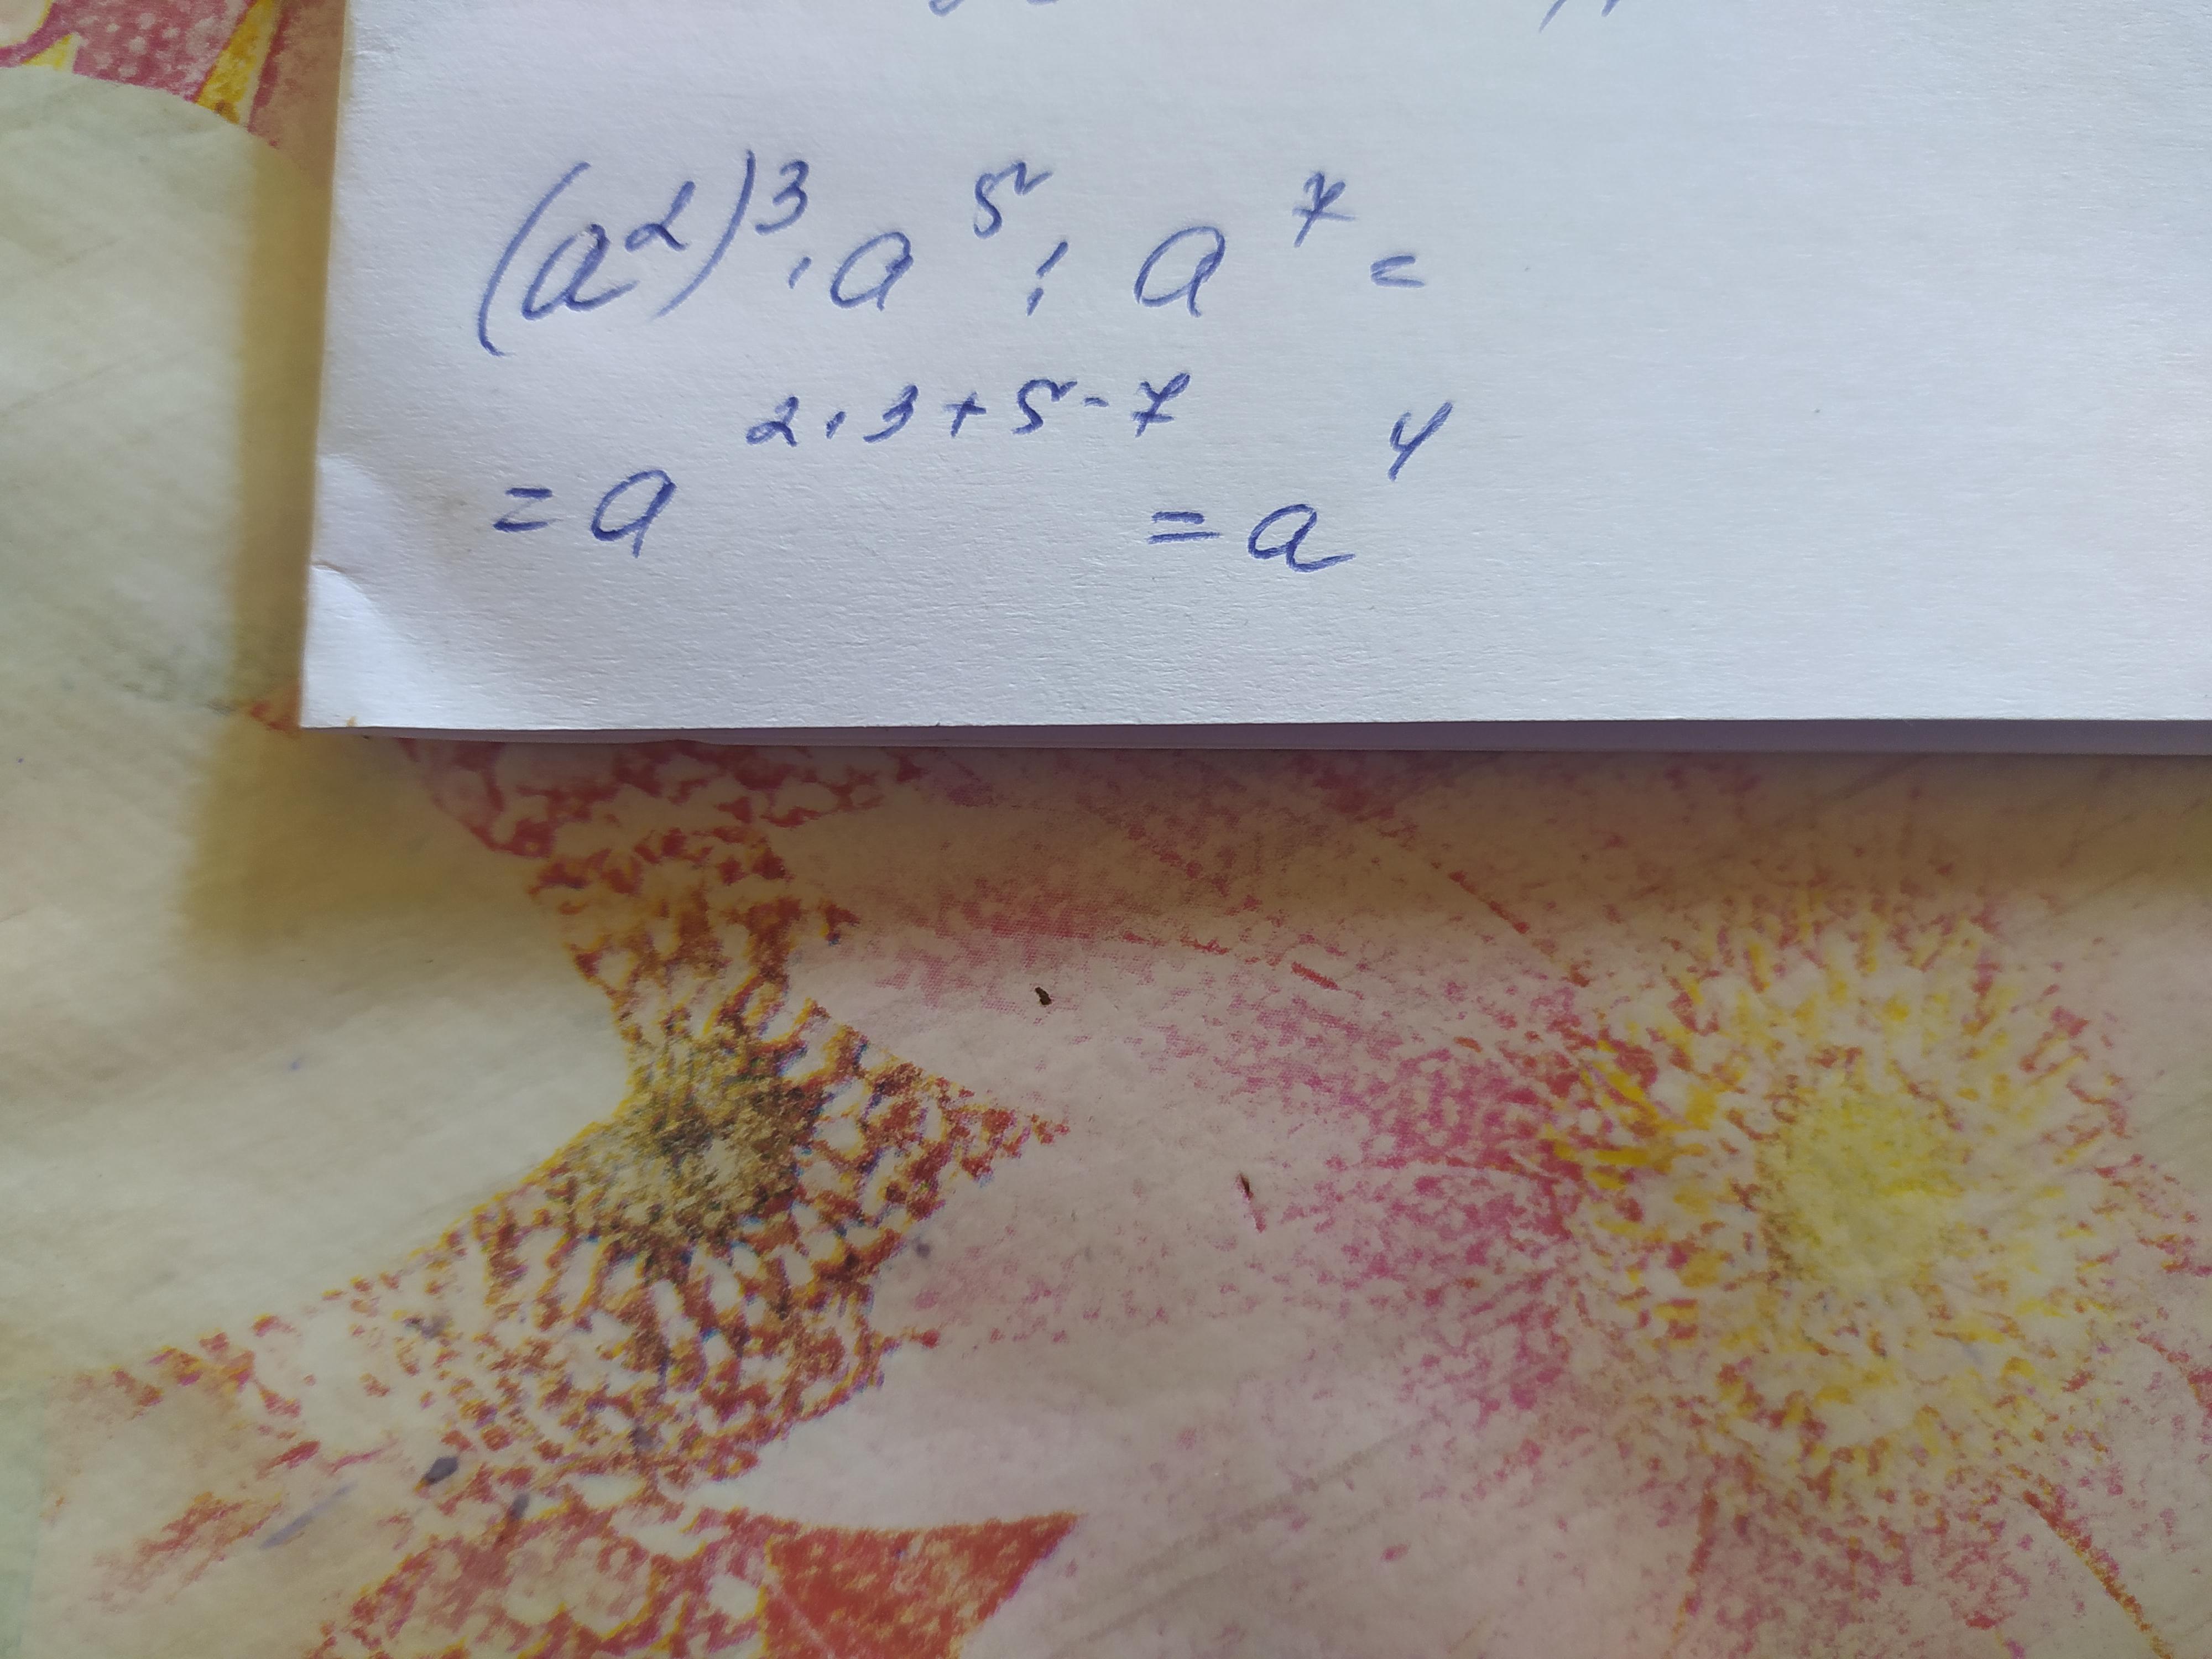 (a²)³ · a⁵ : a⁷ =
= a²·³⁺⁵⁻⁷ = a⁴